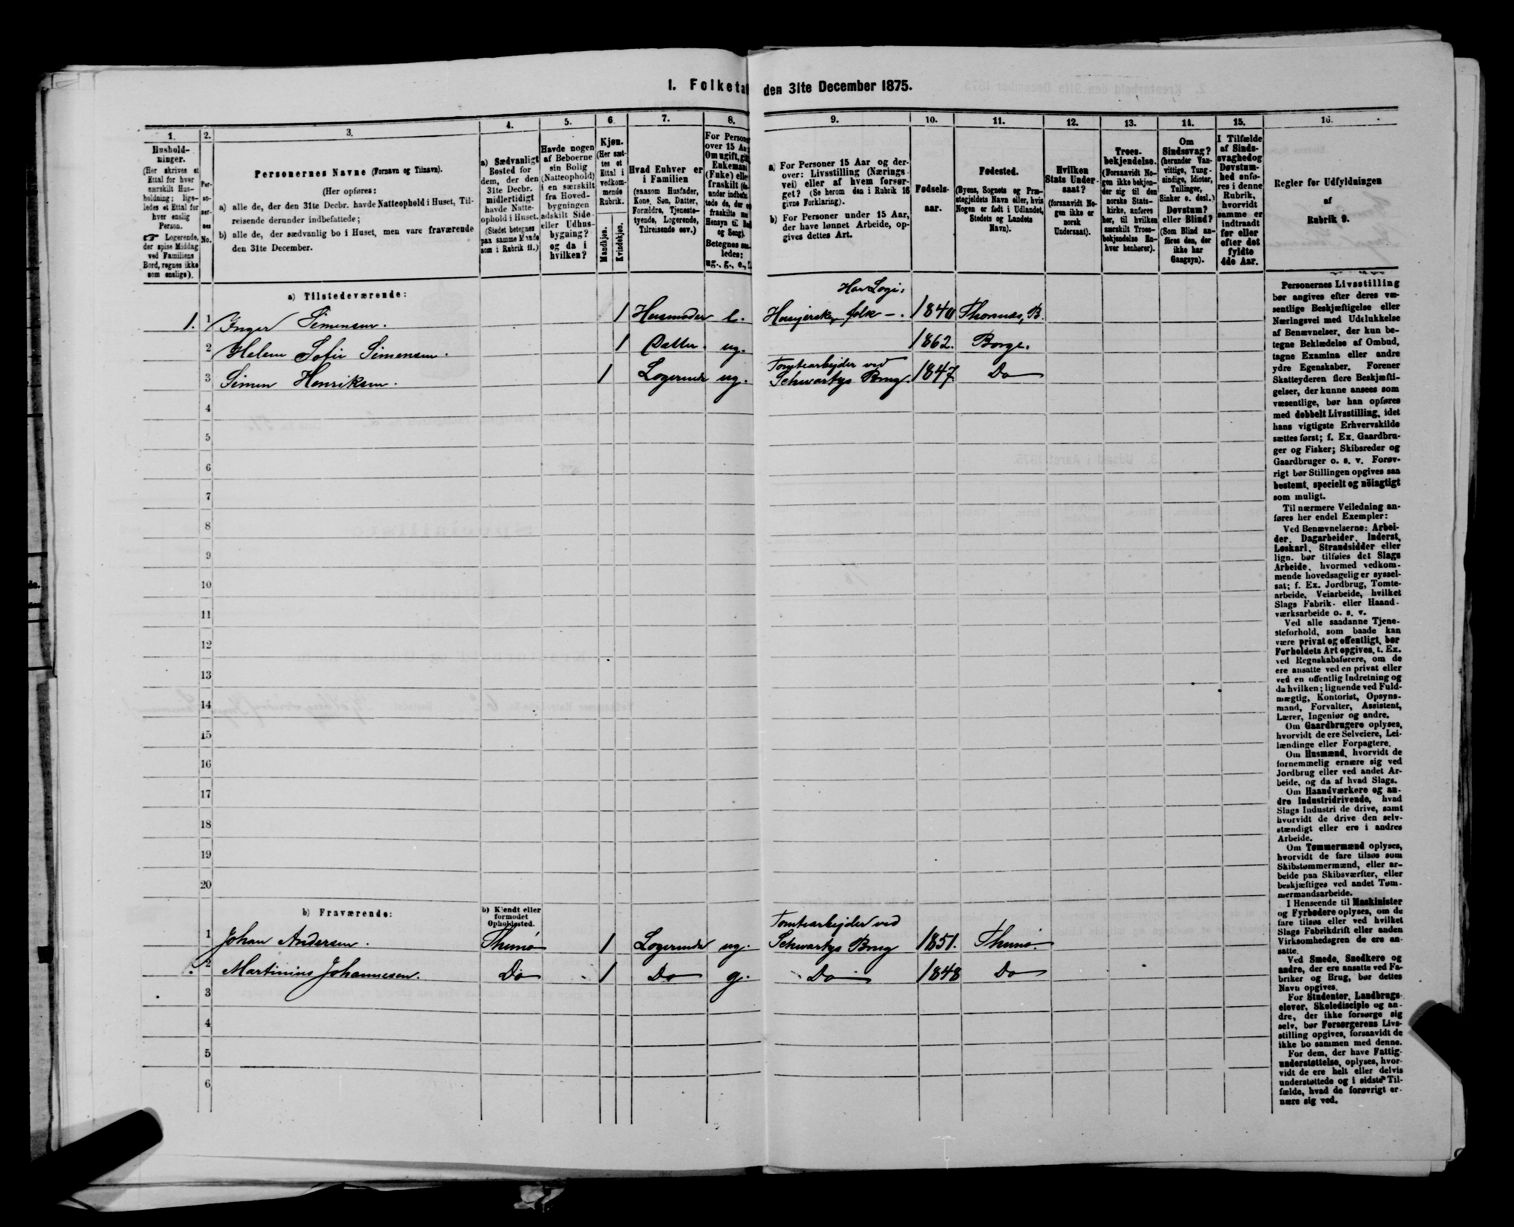 I. Folketal den 31te December 1875.
1. 2. 3. 4. 5. 6 7. 8. 9. 10. 11. 12. 13. 14. 15. 16.
Hushold-
ninger.
(Her skrives et Ettal for hver
særskilt Hus-
holdning; lige-
ledes et Ettal for
hver enslig
Person.
☞ Logerende,
der spise Middag
ved Familiens
Bord, regnes ikke
som enslige).
Per-
so-
ner-
nes
No.
Personernes Navne (Fornavn og Tilnavn).
(Her opføres:
a) alle de, der den 31te Decbr. havde Natteophold i Huset, Til-
reisende derunder indbefattede;
b) alle de, der sædvanlig bo i Huset, men vare fraværende
den 31te December.
a) Sædvanligt
Bosted for
dem, der den
31te Decbr.
midlertidigt
havde Natte-
ophold i Huset.
(Stedet betegnes
paa samme Maade
som i Rubrik 11.)
Havde nogen
af Beboerne
sin Bolig
(Natteophold)
i en særskilt
fra Hoved-
bygningen
adskilt Side-
eller Udhus-
bygning?
og da i
hvilken?
Kjøn.
(Her sæt-
tes et
Ettal i
vedkom-
mende
Rubrik.
Mandkjøn. Kvindekjøn.
Hvad Enhver er
i Familien
(saasom Husfader,
Kone, Søn, Datter,
Forældre, Tjeneste-
tyende, Logerende,
Tilreisende osv.)
For Persone
over 15 Aar
Om ugift, gift
Enkemand
(Enke) eller
fraskilt
Betegnes saa-
ledes:
ug., g., e., f.
a) For Personer 15 Aar og der-
over: Livsstilling (Nærings-
vei) eller af hvem forsør-
get? (Se herom den i Rubrik 16
givne Forklaring).
b) For Personer under 15 Aar,
der have lønnet Arbeide, op-
gives dettes Art.
Fødsels-
aar.
Fødested.
(Byens, Sognets og Præ-
stegjeldets Navn eller, hvis
Nogen er født i Udlandet,
Stedets og Landets
Navn).
Hvilken
Stats Under-
saat?
(forsaavidt No-
gen ikke er
norsk
Undersaat).
Troes-
bekjendelse.
(Forsaavidt No-
gen ikke bekjen-
der sig til den
norske Stats-
kirke, anføres
her, til hvilken
særskilt Troes-
bekjendelse En-
hver henhører).
Om
Sindssvag?
(herunder Van-
vittige, Tung-
sindige, Idioter,
Tullinger,
Sinker o. desl.)
Døvstum?
eller Blind?
(Som Blind an-
føres den, der
ikke har
Gangsyn).
I Tilfælde
af Sinds-
svaghed og
Døvstum-
hed anfø-
res i denne
Rubrik,
hvorvidt
samme er
indtraadt
før eller
efter det
fyldte
4de Aar.
Regler for Udfyldningen
af
Rubrik 9.
a) Tilstedeværende:
Har Logi.
1. 1 Inger Simensen. 1 Husmoder e. folk —. 1840 B.
2 Helene Sofie Simensen. 1 Datter. ug. 1862. Borge.
Tomtearbejder ved
3 Simen Henriksen. 1 Logerende ug. Schwartzs Brug. 1847 Do
4
5
6
7
8
9
10
11
12
13
14
15
16
17
18
19
20
b) Fraværende:
b) Kjendt eller
formodet
Opholdssted.
Tomtearbejder ved
1 Johan Andersen. Thunø 1 Logerende ug. Schwartzs Brug 1851. Thunø
2 Martinius Johannesen. Do 1 Do g. Do 1848 Do
3
4
5
6
Personernes Livsstilling
bør angives efter deres væ-
sentlige Beskjæftigelse eller
Næringsvei med Udelukkelse
af Benævnelser, der kun be-
tegne Beklædelse af Ombud,
tagne Examina eller andre
ydre Egenskaber. Forener
Skatteyderen flere Beskjæfti-
gelser, der kunne ansees som
væsentlige, bør han opføres
med dobbelt Livsstilling, idet
hans vigtigste Erhvervskilde
sættes først; f. Ex. Gaardbru-
ger og Fisker; Skibsreder og
Gaardbruger o. s. v. Forøv-
rigt bør Stillingen opgives saa
bestemt, specielt og nöiagtigt
som muligt.
Til nærmere Veiledning an-
føres her endel Exempler:
Ved Benævnelserne: Arbei-
der, Dagarbeider, Inderst,
Løskarl, Strandsidder eller
lign. bør tilføies det Slags
Arbeide, hvormed vedkom-
mende hovedsagelig er syssel-
sat; f. Ex. Jordbrug, Tomte-
arbeide, Veiarbeide, hvilket
Slags Fabrik- eller Haand-
værksarbeide o. s. v.
Ved alle saadanne Tjene-
steforhold, som baade kan
være privat og offentligt, bør
Forholdets Art opgives, t. Ex.
ved Regnskabsførere, om de
ere ansatte ved en privat eller
ved en offentlig Indretning og
da hvilken; lignende ved Fuld-
mægtig, Kontorist, Opsyns-
mand, Forvalter, Assistent,
Lærer, Ingeniør og andre.
Om Gaardbrugere oplyses,
hvorvidt de ere Selveiere, Lei-
lændinge eller Forpagtere.
Om Husmænd, hvorvidt de
fornemmelig ernære sig ved
Jordbrug eller ved andet Ar-
beide, og da af hvad Slags.
Om Haandværkere og an-
dre Industridrivende, hvad
Slags Industri de drive, samt
hvorvidt de drive den selv-
stændigt eller ere i andres
Arbeide.
Om Tømmermænd oplyses,
hvorvidt de fare tilsøs som
Skibstømmermænd, eller ar-
beide paa Skibsværfter, eller
beskjæftiges ved andet Tøm-
mermandsarbeide.
I Henseende til Maskinister
og Fyrbødere oplyses, om de
fare tilsøs eller ved hvilket
Slags Fabrikdrift eller anden
Virksomhedsgren de ere an-
satte.
Ved Smede, Snedkere og
andre, der ere ansatte ved Fa-
briker og Brug, bør dettes
Navn opgives.
For Studenter, Landbrugs-
elever, Skoledisciple og an-
dre, der ikke forsørge sig
selv, bør Forsørgerens Livs-
stilling opgives, forsaavidt de
ikke bo sammen med denne.
For dem, der have Fattig-
understøttelse, oplyses, hvor-
vidt de ere helt eller delvis
understøttede og i sidste Til-
fælde, hvad de forøvrigt er-
nære sig ved.